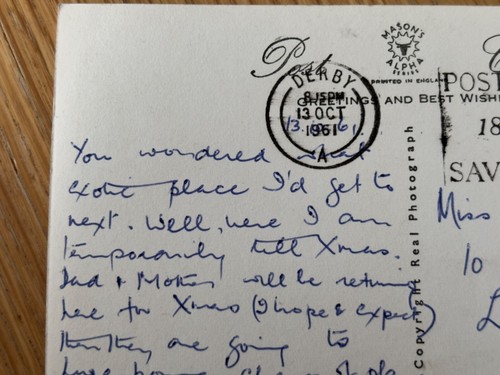 Post
MASON'S
ALPHA
SERIES
PRINTED IN ENGLAND
GREETINGS AND BEST WISH
DERBY
8.15PM
13 OCT
1961
A
POST
18
SAV
Copyright Real Photograph
13 61
You wondered what
exotic place I'd get to
next. Well, here I am
temporarily till Xmas.
Dad & Mother will be return
here for Xmas (I hope & expect)
they are going to
Miss
10
L